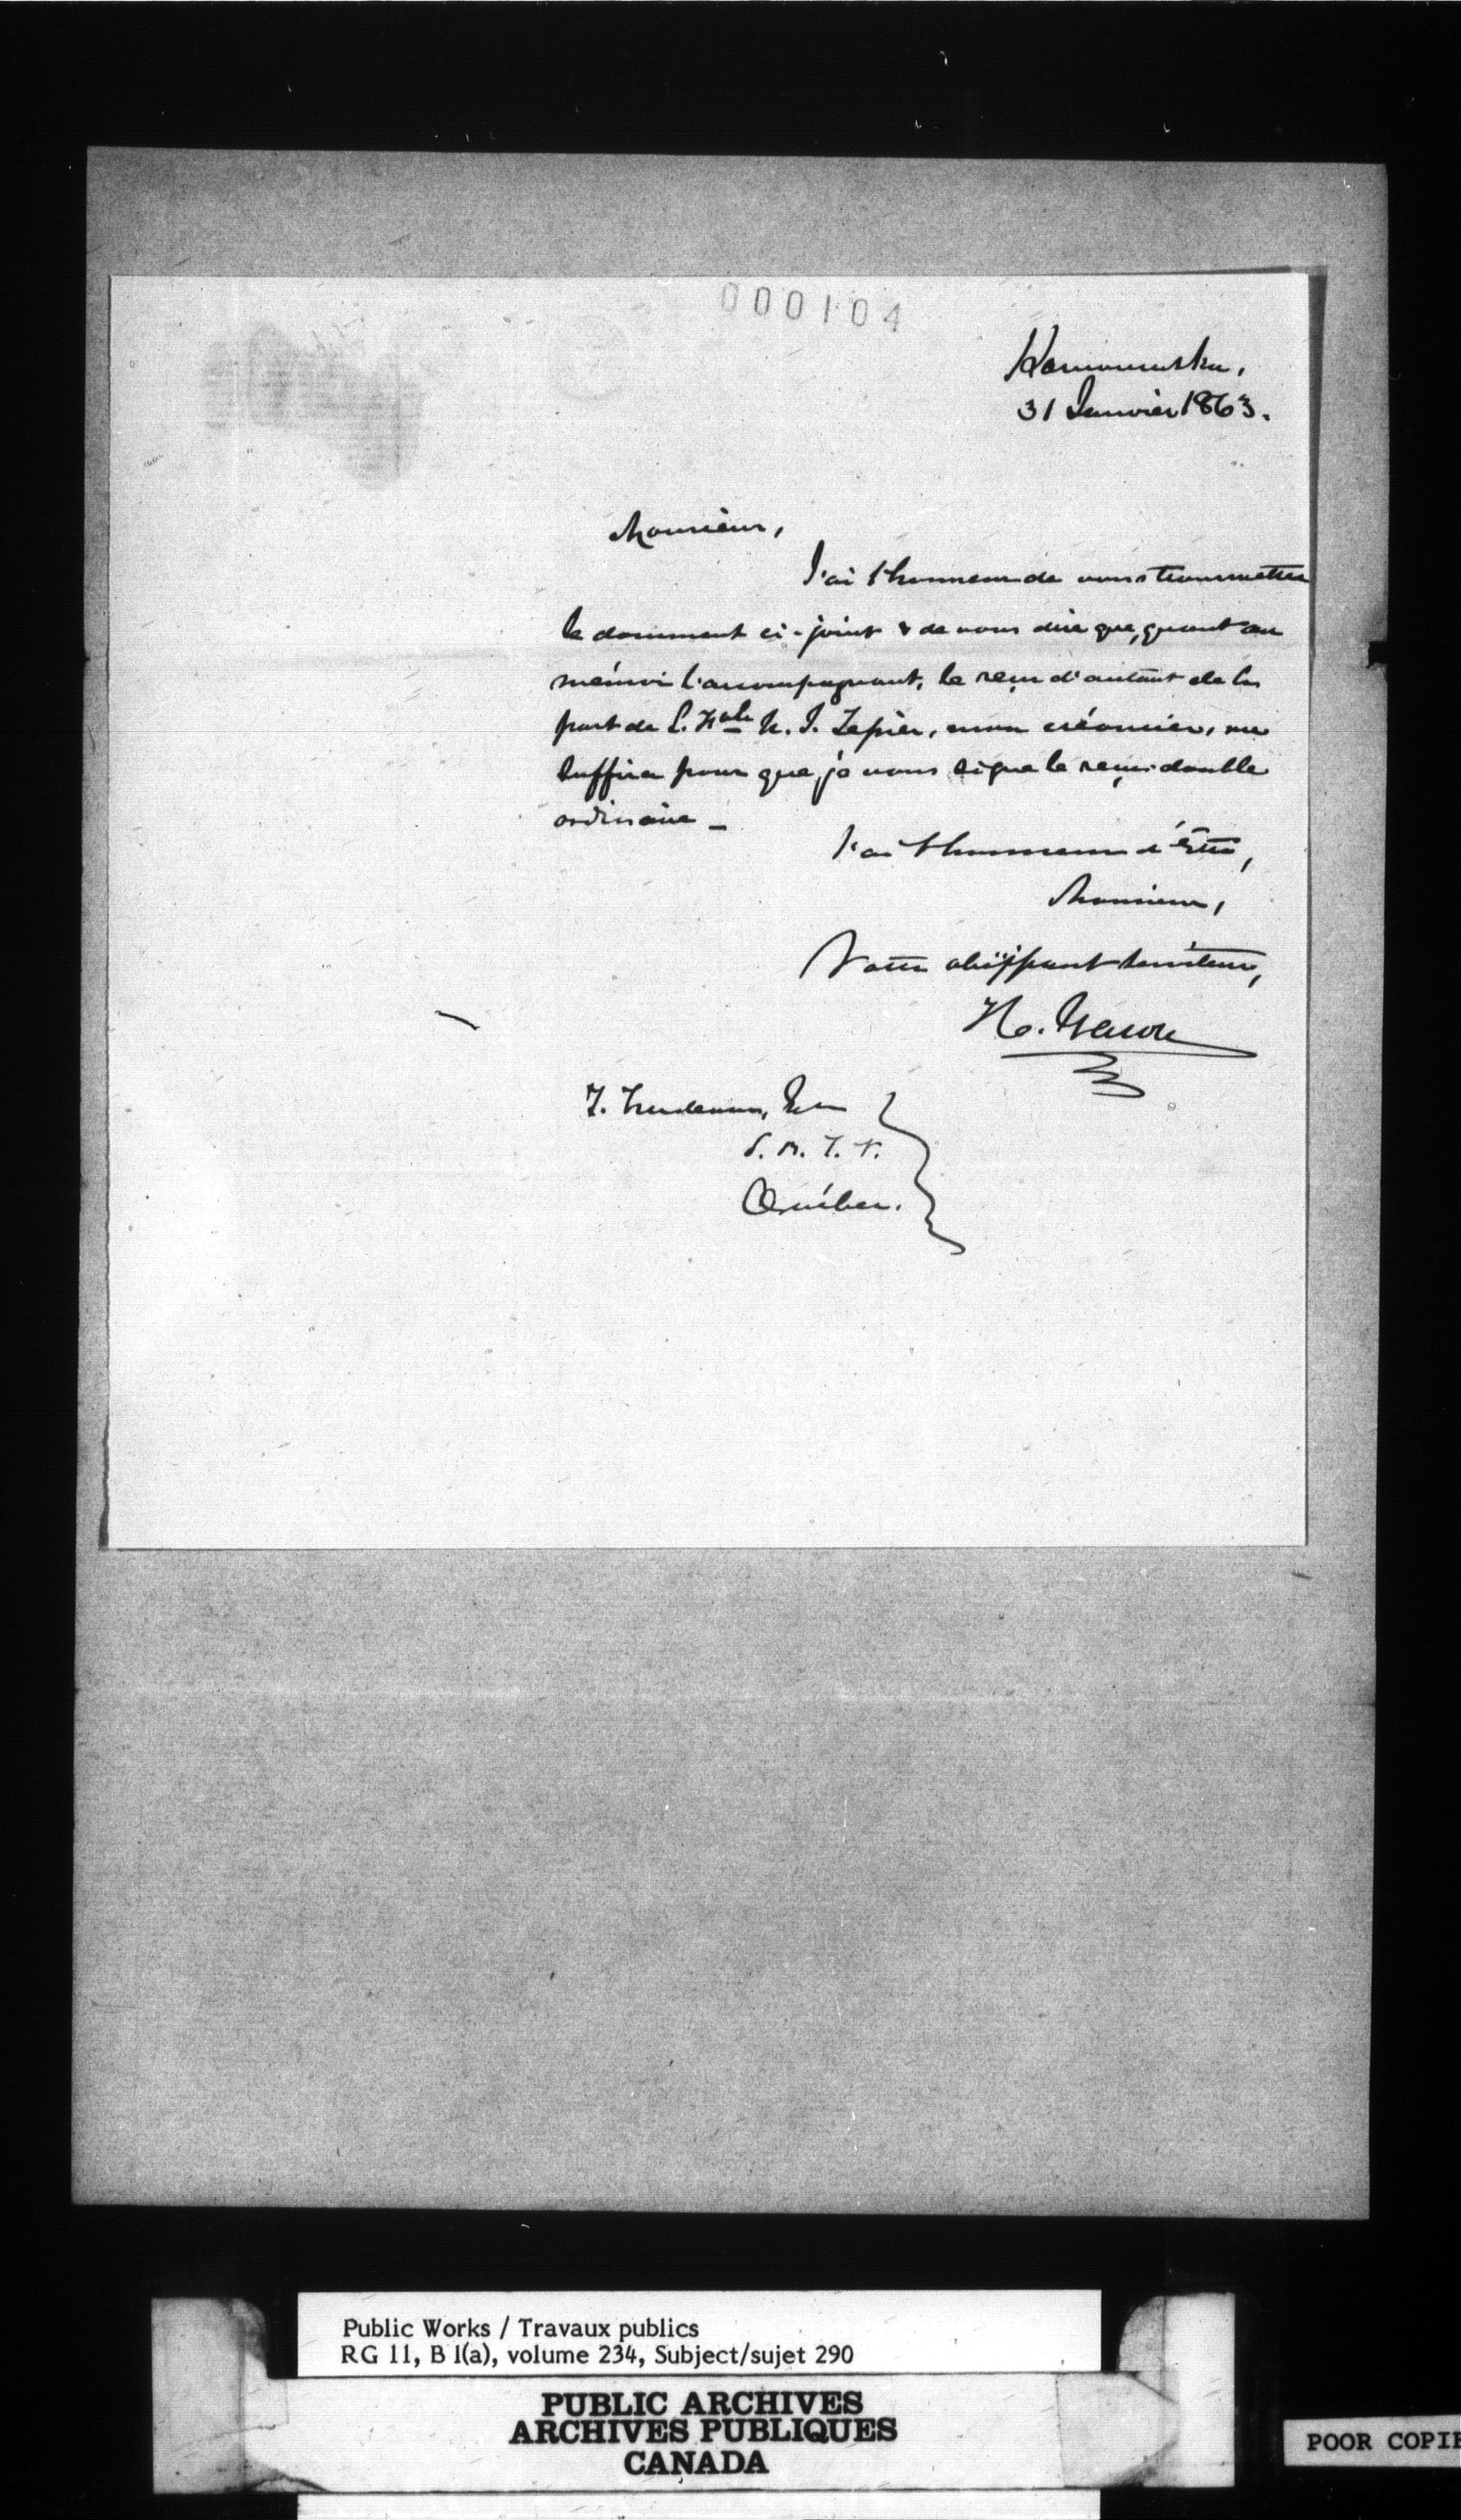 000104
Kamouraska,
31 Janvier 1863.
Monsieur,
J'ai l'honneur de vous transmettre
le document ci-joint & de vous dire que, quant au
mémoire l'accompagnant, le reçu d'autant de la
part de L. Hble U. J. Tessier, mon créancier, me
suffira pour que je vous signe le reçu double
ordinaire _
J'ai l'honneur d'être,
Monsieur,
Votre obéissant serviteur,
T. Trudeau, Ecr
S. B. T. P.
Québec.
Public Works / Travaux publics
RG 11, B 1(a), volume 234, Subject/sujet 290
PUBLIC ARCHIVES
ARCHIVES PUBLIQUES
CANADA
POOR COPIE